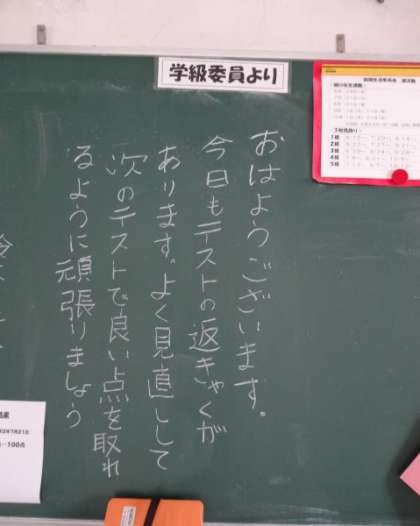 学級委員より
おはようございます。
今日もテストの返きゃくが
あります。よく見直しして
次のテストで良い点を取れ
るように頑張りましょう
1組
2組
3組
4組
5組